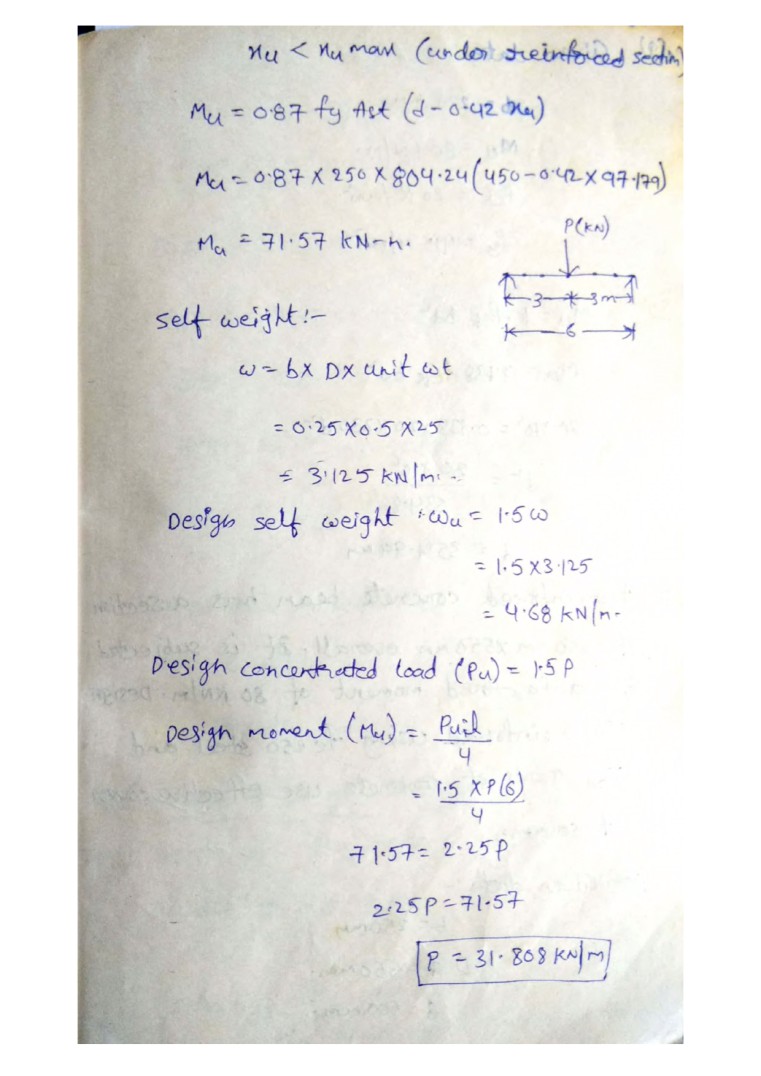 xu < xu max (under reinforced section)
Mu = 0.87 fy Ast (d - 0.42 xu)
Mu = 0.87 X 250 X 804.24 (450 - 0.42 X 97.179)
Mu = 71.57 KN-m.
P(KN)
3 3m
6
Self weight:-
w = b X D X unit wt
= 0.25 X 0.5 X 25
= 3.125 KN/m.
Design self weight : wu = 1.5 w
= 1.5 X 3.125
= 4.68 KN/m.
Design concentrated load (Pu) = 1.5 P
Design moment (Mu) = Pu.l / 4
= 1.5 X P(6) / 4
71.57 = 2.25 P
2.25 P = 71.57
P = 31.808 KN/m